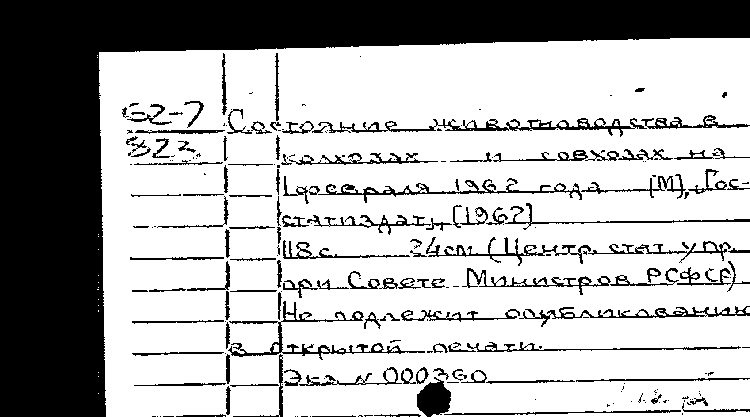 62-7 Состояние животноводства в
822 колхозах и совхозах на
1 февраля 1962 года [М], „Гос-
статиздат„, [1962]
118 с. 24 см (Центр. стат упр.
при Совете Министров РСФСР)
Не подлежит опубликованию
в открытой печати.
Экз N 000360